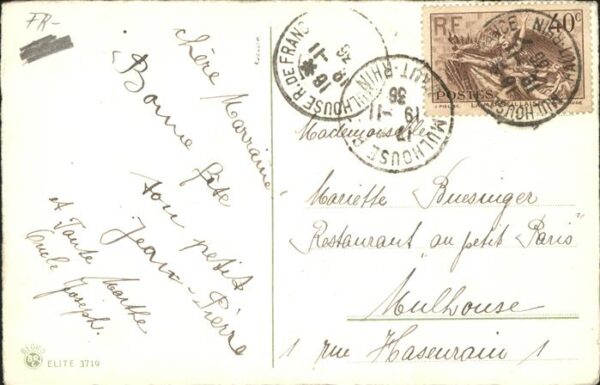 FR-
chère Marraine
Bonne fête
ton petit
Jean-Pierre
et Tante Marthe
Oncle Joseph.
ELITE 3719
MULHOUSE R. DE FRANCE
18
19 -11
36
MULHOUSE
HAUT-RHIN
17
19 -11
36
MULHOUSE
RF
40c
POSTES
Mademoiselle
Mariette Buesinger
Restaurant "au petit Paris"
Mulhouse
1 rue Hasenrain 1